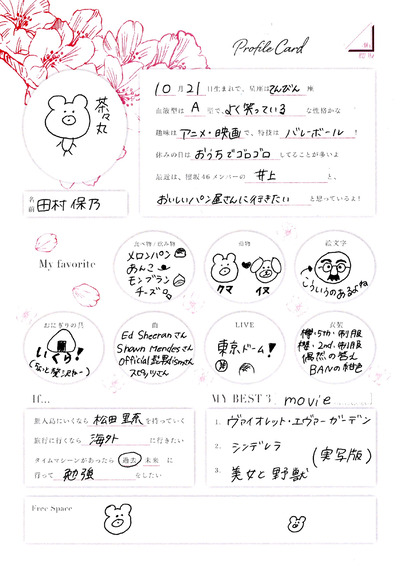 Profile Card
茶々丸
10月21日生まれで、星座はてんびん座
血液型はA型で、よく笑っているな性格かな
趣味はアニメ・映画で、特技はバレーボール!
休みの日はおうちでゴロゴロしてることが多いよ
最近は、櫻坂46メンバーの井上と、
おいしいパン屋さんに行きたいと思っているよ!
名前 田村保乃
My favorite
食べ物/飲み物
メロンパン
あんこ
モンブラン
チーズ
動物
クマ
イヌ
絵文字
こういうのあるよね
おにぎりの具
いくら!
曲
Ed Sheeranさん
Shawn Mendesさん
Official髭男dismさん
スピッツさん
LIVE
東京ドーム!
衣装
櫻・5th・制服
櫻・2nd・制服
偶然の答え
BANの紺色
If...
無人島にいくなら松田里奈を持っていく
旅行に行くなら海外に行きたい
タイムマシーンがあったら過去 未来に
行って勉強をしたい
MY BEST 3 movie
1. ヴァイオレット・エヴァーガーデン
2. シンデレラ
3. 美女と野獣
(実写版)
Free Space